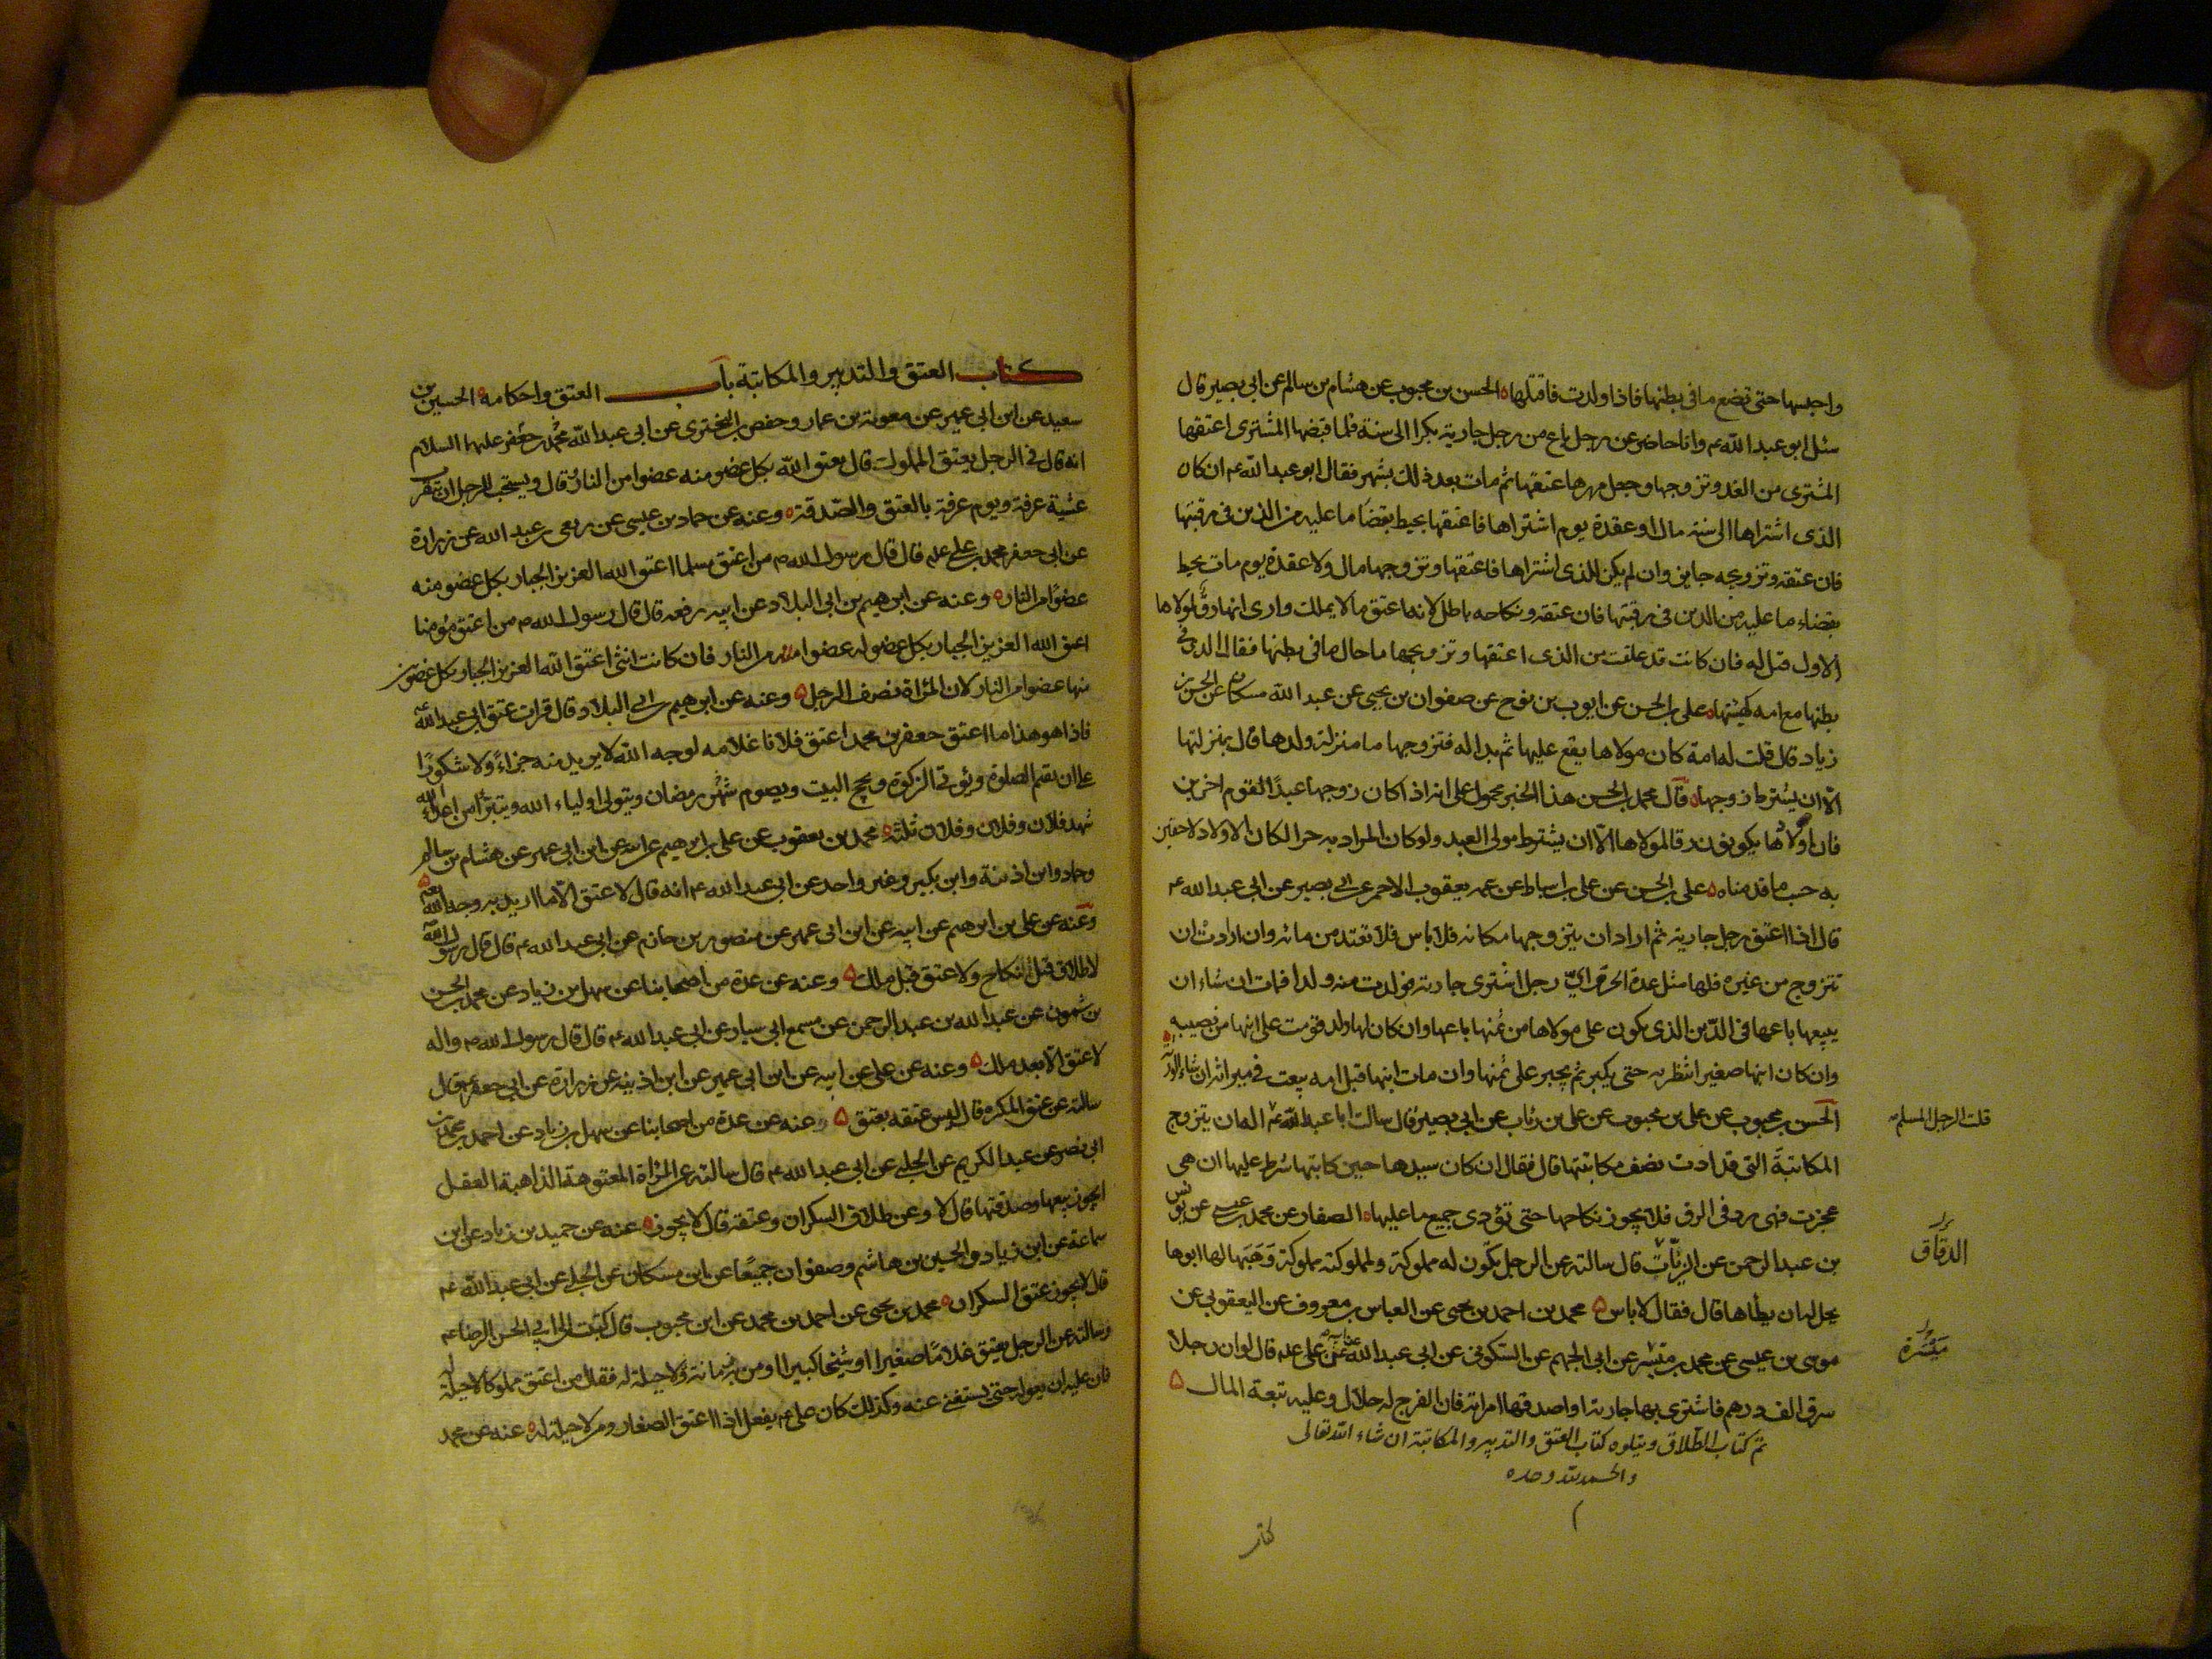 واحبسها حتى تضع ما في بطنها فاذا ولدت فاقتلها ه الحسن بن محبوب عن هشام بن سالم عن ابي بصير قال
سئل ابو عبد الله ع وانا حاضر عن رجل باع من رجل جارية بكرا الى سنة فلما قبضها المشترى اعتقها
المشترى من الغد وتزوجها وجعل مهرها عتقها ثم مات بعد ذلك بشهر فقال ابو عبد الله ع ان كان
الذى اشتراها الى سنة مال او عقدة يوم اشتراها فاعتقها يحيط بقضاء ما عليه من الدين في رقبتها
فان عتقه وتزويجه جايز وان لم يكن للذى اشتراها فاعتقها وتزوجها مال ولا عقدة يوم مات يحيط
بقضاء ما عليه من الدين في رقبتها فان عتقه ونكاحه باطل لانه اعتق ما لا يملك وارى انها رق لمولاها
الاول قيل له فان كانت قد علقت من الذى اعتقها وتزويجها ما حال ما في بطنها فقال الذى في
بطنها مع امه كهيئتها ه على بن الحسن عن ايوب بن نوح عن صفوان بن يحيى عن عبد الله مسكان عن الحسن بن
زياد قال قلت له امة كان مولاها يقع عليها ثم بدا له فتزوجها ما منزلة ولدها قال بمنزلتها
الا ان يشترط زوجها ه قال محمد بن الحسن هذا الخبر محمول على انه اذا كان زوجها عبدا لقوم اخرين
فان اولادها يكونون رقا لمولاها الا ان يشترط مولى العبد ولو كان المراد به حرا لكان الاولاد لاحقين
به حسب ما قدمناه ه على بن الحسن عن على بن اسباط عن عمه يعقوب الاحمر عن ابي بصير عن ابي عبد الله ع
قال اذا اعتق رجل جارية ثم اراد ان يتزوجها مكانه فلا باس فلا تعتد من مائه وان ارادت ان
تتزوج من غيره فلها مثل عدة الحرة رجل اشترى جارية فولدت منه ولدا فمات ان شاء ان
يبيعها باعها في الدين الذى يكون على مولاها من ثمنها باعها وان كان لها ولد قومت على ابنها من نصيبه
وان كان ابنها صغيرا انتظر به حتى يكبر ثم يجبر على ثمنها وان مات ابنها قبل امه بيعت في ميراثه ان شاء الورثة ه
الحسن بن محبوب عن على بن محبوب عن على بن رئاب عن ابي بصير قال سالت ابا عبد الله ع اله ان يتزوج
قلت الرجل المسلم
المكاتبة التى قد ادت نصف مكاتبتها قال فقال ان كان سيدها حين كاتبها شرط عليها ان هى
عجزت فهى رد في الرق فلا يجوز نكاحها حتى تؤدى جميع ما عليها ه الصفار عن محمد بن عيسى عن يونس
بن عبد الرحمن عن الزيات قال سالته عن الرجل يكون له مملوكة ولمملوكته مملوكة وهبها لها ابوها
الدقاق
يحل له ان يطأها قال فقال لا باس ه محمد بن احمد بن يحيى عن العباس بن معروف عن اليعقوبى عن
موسى بن عيسى عن محمد بن ميسر عن ابي الجهم عن السكونى عن ابي عبد الله عن على ع قال لو ان رجلا
ميسرة
سرق الف درهم فاشترى بها جارية او اصدقها امراته فان الفرج له حلال وعليه تبعة المال ه
تم كتاب الطلاق ويتلوه كتاب العتق والتدبير والمكاتبة ان شاء الله تعالى
والحمد لله وحده
كتاب
كتاب العتق والتدبير والمكاتبة باب العتق واحكامه ه الحسين بن
سعيد عن ابن ابي عمير عن معوية بن عمار وحفص بن البخترى عن ابي عبد الله محمد بن جعفر عليهما السلام
انه قال في الرجل يعتق المملوك قال يعتق الله بكل عضو منه عضوا من النار قال ويستحب للرجل ان يتقرب
عشية عرفة ويوم عرفة بالعتق والصدقة ه وعنه عن حماد بن عيسى عن ربعى بن عبد الله عن زرارة
عن ابي جعفر محمد بن على ع قال قال رسول الله ص من اعتق مسلما اعتق الله العزيز الجبار بكل عضو منه
عضوا من النار ه وعنه عن ابرهيم بن ابي البلاد عن ابيه رفعه قال قال رسول الله ص من اعتق مؤمنا
اعتق الله العزيز الجبار بكل عضو له عضوا من النار فان كانت انثى اعتق الله العزيز الجبار بكل عضوين
منها عضوا من النار لان المرأة نصف الرجل ه وعنه عن ابرهيم بن ابي البلاد قال قرات عتق ابي عبد الله ع
فاذا هو هذا ما اعتق جعفر بن محمد اعتق فلانا غلامه لوجه الله لا يريد منه جزاء ولا شكورا
على ان يقيم الصلوة ويؤتى الزكوة ويحج البيت ويصوم شهر رمضان ويتولى اولياء الله ويتبرأ من اعداء الله
شهد فلان وفلان وفلان ثلثة ه محمد بن يعقوب عن على بن ابرهيم عن ابيه عن ابن ابي عمير عن هشام بن سالم
وحماد وابن اذينة وابن بكير وغير واحد عن ابي عبد الله ع انه قال لا عتق الا ما اريد به وجه الله ه
وعنه عن على بن ابرهيم عن ابيه عن ابن ابي عمير عن منصور بن حازم عن ابي عبد الله ع قال قال رسول الله
لا طلاق قبل نكاح ولا عتق قبل ملك ه وعنه عن عدة من اصحابنا عن سهل بن زياد عن محمد بن الحسن
بن شمون عن عبد الله بن عبد الرحمن عن مسمع ابي سيار عن ابي عبد الله ع قال قال رسول الله ص واله
لا عتق الا بعد ملك ه وعنه عن على عن ابيه عن ابن ابي عمير عن ابن اذينة عن زرارة عن ابي جعفر ع قال
سالته عن عتق المكره قال ليس عتقه بعتق ه وعنه عن عدة من اصحابنا عن سهل بن زياد عن احمد بن محمد بن
ابي نصر عن عبد الكريم عن الحلبى عن ابي عبد الله ع قال سالته عن المرأة المعتوهة الذاهبة العقل
ايجوز بيعها وصدقتها قال لا وعن طلاق السكران وعتقه قال لا يجوز ه عنه عن حميد بن زياد عن ابن
سماعة عن ابن زياد والحسين بن هاشم وصفوان جميعا عن ابن مسكان عن الحلبى عن ابي عبد الله ع
قال لا يجوز عتق السكران ه محمد بن يحيى عن احمد بن محمد عن ابن محبوب قال كتبت الى ابي الحسن الرضا ع
وسالته عن الرجل يعتق غلاما صغيرا او شيخا كبيرا او من به زمانة ولا حيلة له فقال من اعتق مملوكا لا حيلة له
فان عليه ان يعوله حتى يستغنى عنه وكذلك كان على ع يفعل اذا اعتق الصغار ومن لا حيلة له ه عنه عن محمد